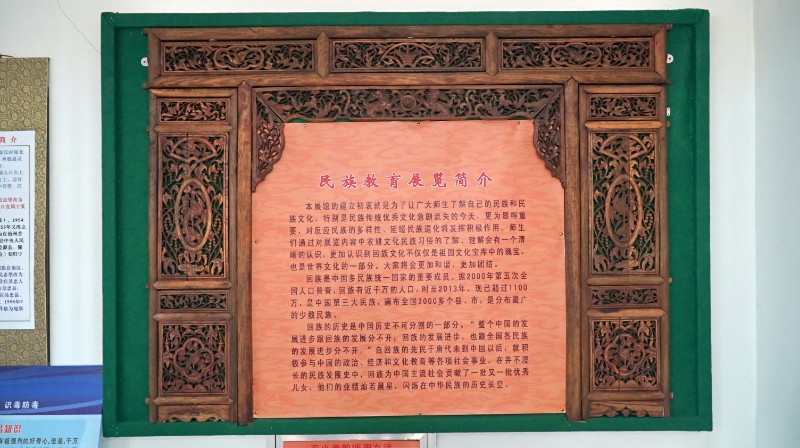 民族教育展览简介
本展馆的建立初衷就是为了让广大师生了解自己的民族和民
族文化,特别是民族传统优秀文化急剧流失的今天,更为显得重
要,对反应民族的多样性、延缓民族退化将发挥积极作用。师生
们通过对展览内容中浓缩文化民族习俗的了解,理解会有一个清
晰的认识,更加认识到回族文化不仅仅是祖国文化宝库中的瑰宝,
也是世界文化的一部分。大家将会更加和谐、更加团结。
回族是中国多民族统一国家的重要成员。据2000年第五次全
国人口普查,回族有近千万的人口,时至2013年,现已超过1100
万,是中国第三大民族,遍布全国2000多个县、市,是分布最广
的少数民族。
回族的历史是中国历史不可分割的一部分。"整个中国的发
展进步跟回族的发展分不开;回族的发展进步,也跟全国各民族
的发展进步分不开。"自回族的先民于唐代来到中国以后,就积
极参与中国的政治、经济和文化教育等各项社会事业,在并不漫
长的民族发展史中,回族为中国主流社会贡献了一批又一批优秀
儿女,他们的业绩灿若晨星,闪烁在中华民族的历史长空。
简 介
识毒防毒